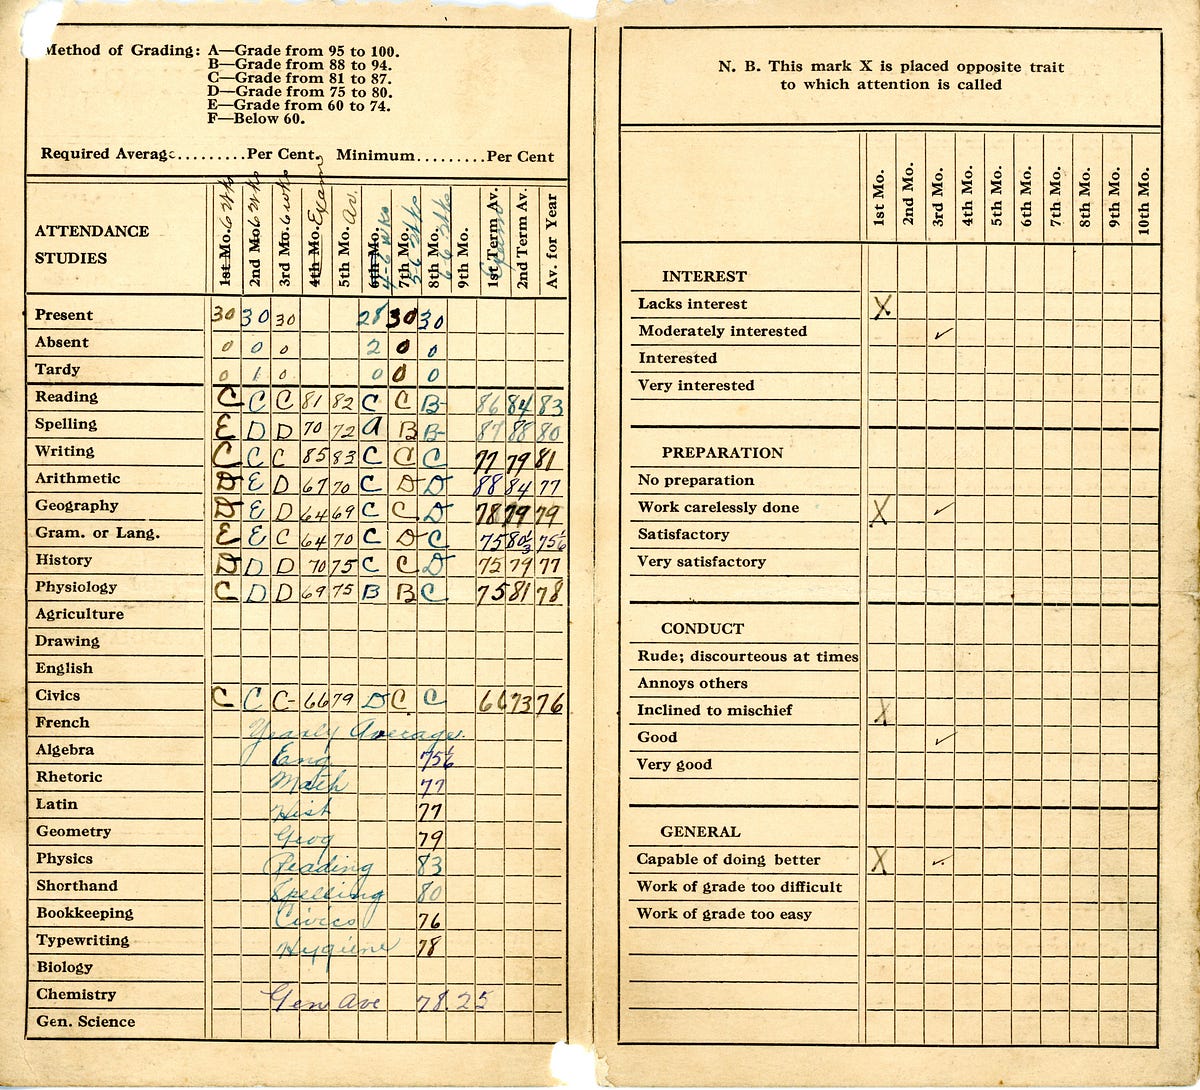 Method of Grading: A—Grade from 95 to 100.
B—Grade from 88 to 94.
C—Grade from 81 to 87.
D—Grade from 75 to 80.
E—Grade from 60 to 74.
F—Below 60.
Required Average.........Per Cent. Minimum.........Per Cent
ATTENDANCE
STUDIES
1st Mo. 6 wks
2nd Mo. 6 wks
3rd Mo. 6 wks
4th Mo. Exam
5th Mo. Av.
6th Mo. 4-6 wks
7th Mo. 5-6 wks
8th Mo. 6-6 wks
9th Mo.
1st Term Av. Exam
2nd Term Av.
Av. for Year
Present 30 30 30 28 30 30
Absent 0 0 0 2 0 0
Tardy 0 1 0 0 0 0
Reading C C C 81 82 C C B- 86 84 83
Spelling E D D 70 72 A B B- 87 88 80
Writing C C C 85 83 C C C 77 79 81
Arithmetic D E D 67 70 C D D 88 84 77
Geography D E D 64 69 C C D 78 79 79
Gram. or Lang. E E C 64 70 C D C 75 80⅓ 75⅙
History D D D 70 75 C C D 75 79 77
Physiology C D D 69 75 B B C 75 81 78
Agriculture
Drawing
English
Civics C C C- 66 79 D C C 66 73 76
French
Yearly Average.
Algebra Eng 75⅙
Rhetoric Math 77
Latin Hist 77
Geometry Geog 79
Physics Reading 83
Shorthand Spelling 80
Bookkeeping Civics 76
Typewriting Hygiene 78
Biology
Chemistry Gen Ave 78.25
Gen. Science
N. B. This mark X is placed opposite trait
to which attention is called
1st Mo.
2nd Mo.
3rd Mo.
4th Mo.
5th Mo.
6th Mo.
7th Mo.
8th Mo.
9th Mo.
10th Mo.
INTEREST
Lacks interest X
Moderately interested ✓
Interested
Very interested
PREPARATION
No preparation
Work carelessly done X ✓
Satisfactory
Very satisfactory
CONDUCT
Rude; discourteous at times
Annoys others
Inclined to mischief X
Good ✓
Very good
GENERAL
Capable of doing better X ✓
Work of grade too difficult
Work of grade too easy